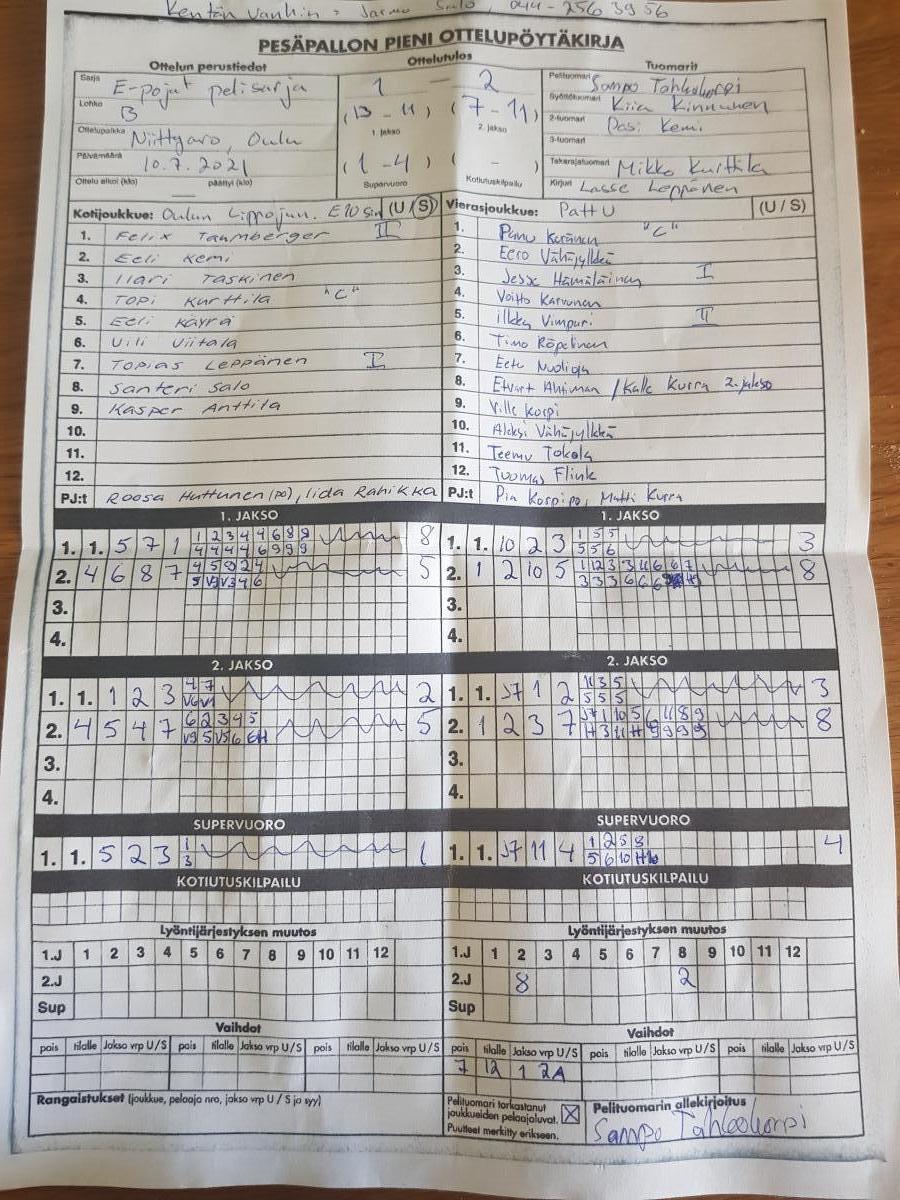 Kentän vanhin = Jarmo Salo, 044-256 3956
PESÄPALLON PIENI OTTELUPÖYTÄKIRJA
Ottelun perustiedot Ottelutulos Tuomarit
Sarja E-pojat pelisarja
Lohko B
Ottelupaikka Niittyaro, Oulu
Päivämäärä 10.7.2021
Ottelu alkoi (klo) päättyi (klo)
1 - 2
(13 - 11) (7 - 11)
1. jakso 2. jakso
(1 - 4) ( - )
Supervuoro Kotiutuskilpailu
Pelituomari Sampo Tahkokorpi
Syöttötuomari Kiia Kinnunen
2-tuomari Pasi Kemi
3-tuomari
Takarajatuomari Mikko Kurttila
Kirjuri Lasse Leppänen
Kotijoukkue: Oulun Lippojun. E10 sin (U / S)
1. Felix Taumberger II
2. Eeli Kemi
3. Ilari Taskinen
4. Topi Kurttila "C"
5. Eeli Käyrä
6. Vili Viitala
7. Topias Leppänen I
8. Santeri Salo
9. Kasper Anttila
10.
11.
12.
PJ:t Roosa Huttunen (PO), Iida Rahikka
Vierasjoukkue: PattU (U / S)
1. Panu Keränen "C"
2. Eero Vähäjylkkä
3. Jesse Hämäläinen I
4. Voitto Karvonen
5. Ilkka Vimpari II
6. Timo Röpelinen
7. Eetu Nuolioja
8. Ahtinen / Kalle Kurra 2. jakso
9. Ville Korpi
10. Aleksi Vähäjylkkä
11. Teemu Tokola
12. Tuomas Flink
PJ:t Pia Korpipo, Matti Kurra
1. JAKSO 1. JAKSO
1. 1. 5 7 1 1 2 3 4 4 6 8 9 8
4 4 4 4 6 9 9 9
2. 4 6 8 7 5
3.
4.
1. 1. 10 2 3 1 5 5 3
5 5 6
2. 1 2 10 5 8
3.
4.
2. JAKSO 2. JAKSO
1. 1. 1 2 3 4 7 2
V6 V1
2. 4 5 4 7 6 2 3 4 5 5
V9 5 V5 6 6H
3.
4.
1. 1. J7 1 2 11 3 5 3
5 5 5
2. 1 2 3 7 J7 1 10 5 6 11 8 9 8
H 3 11 H 9 9 9 9
3.
4.
SUPERVUORO SUPERVUORO
1. 1. 5 2 3 1 1
3
1. 1. J7 11 4 1 2 5 8 4
5 6 10
KOTIUTUSKILPAILU KOTIUTUSKILPAILU
Lyöntijärjestyksen muutos Lyöntijärjestyksen muutos
1.J 1 2 3 4 5 6 7 8 9 10 11 12
2.J
Sup
1.J 1 2 3 4 5 6 7 8 9 10 11 12
2.J 8 2
Sup
Vaihdot Vaihdot
pois tilalle Jakso vrp U/S pois tilalle Jakso vrp U/S pois tilalle Jakso vrp U/S
pois tilalle Jakso vrp U/S pois tilalle Jakso vrp U/S pois tilalle Jakso vrp U/S
7 12 1 2A
Rangaistukset (joukkue, pelaaja nro, jakso vrp U / S ja syy)
Pelituomari tarkastanut
joukkueiden pelaajaluvat.
Puutteet merkitty erikseen.
Pelituomarin allekirjoitus
Sampo Tahkokorpi